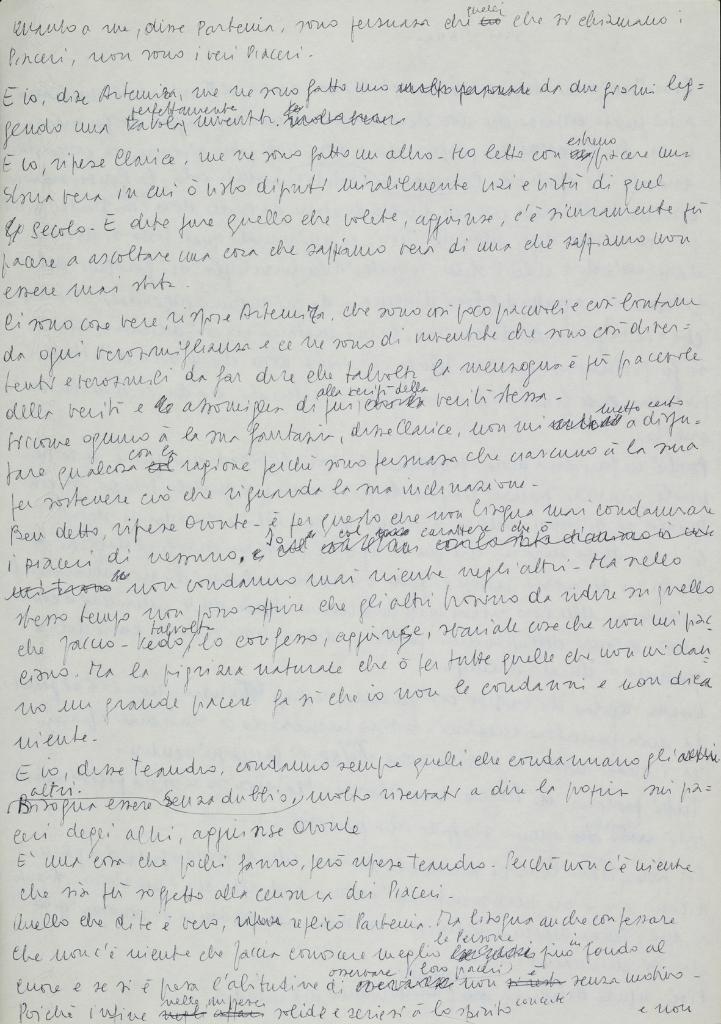 Quanto a me, disse Partenia, sono persuasa che quelli che si chiamano i
Piaceri, non sono i veri Piaceri.
E io, disse Artemiza, me ne sono fatto uno da due giorni leg-
gendo una favola perfettamente inventata.
E io, riprese Clarice, me ne sono fatto un altro - Ho letto con estremo piacere una
storia vera in cui ò visto dipinti mirabilmente vizi e virtù di quel
secolo - E dite pure quello che volete, aggiunse, c'è sicuramente più
piacere a ascoltare una cosa che sappiamo vera di una che sappiamo non
essere mai stata.
Ci sono cose vere, rispose Artemiza, che sono così poco piacevoli e così lontane
da ogni verosimiglianza e ce ne sono di inventate che sono così diver-
tenti e verosimili da far dire che talvolta la menzogna è più piacevole
della verità e assomiglia di più alla verità della verità stessa -
Siccome ognuno à la sua fantasia, disse Clarice, non mi metto certo a dispu-
tare qualcosa con la ragione perchè sono persuasa che ciascuno à la sua
per sostenere ciò che riguarda la sua inclinazione -
Ben detto, riprese Oronte - è per questo che non bisogna mai condannare
i piaceri di nessuno. Io col carattere che ò
non condanno mai niente negli altri - Ma nello
stesso tempo non posso soffrire che gli altri trovino da ridire su quello
che faccio - Vedo talvolta, lo confesso, aggiunse, svariate cose che non mi piac-
ciono. Ma la pigrizia naturale che ò per tutte quelle che non mi dan-
no un grande piacere fa sì che io non le condanni e non dica
niente -
E io, disse Teandro, condanno sempre quelli che condannano gli
altri.
Bisogna essere senza dubbio, molto riservati a dire la propria sui pia-
ceri degli altri, aggiunse Oronte
E' una cosa che pochi fanno, però riprese Teandro - Perchè non c'è niente
che sia più soggetto alla censura dei Piaceri.
Quello che dite è vero, replicò Partenia. Ma bisogna anche confessare
che non c'è niente che faccia conoscere meglio le Persone fino in fondo al
cuore e se si è presa l'abitudine di osservare i loro piaceri non è senza motivo -
Poichè infine nelle imprese solide e seriose à lo spirito e non